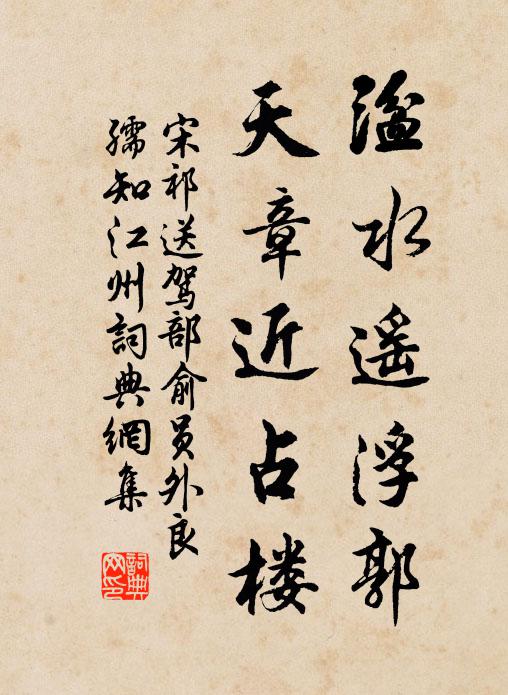 湓水遥浮郭
天章近占楼
宋祁送驾部俞员外良
孺知江州詞典網集
詞典
网印